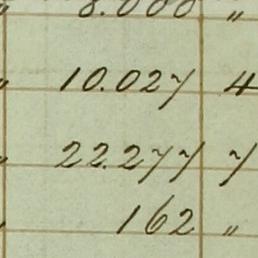 " 8.000 "
" 10.027 4
" 22.277 7
" 162 "